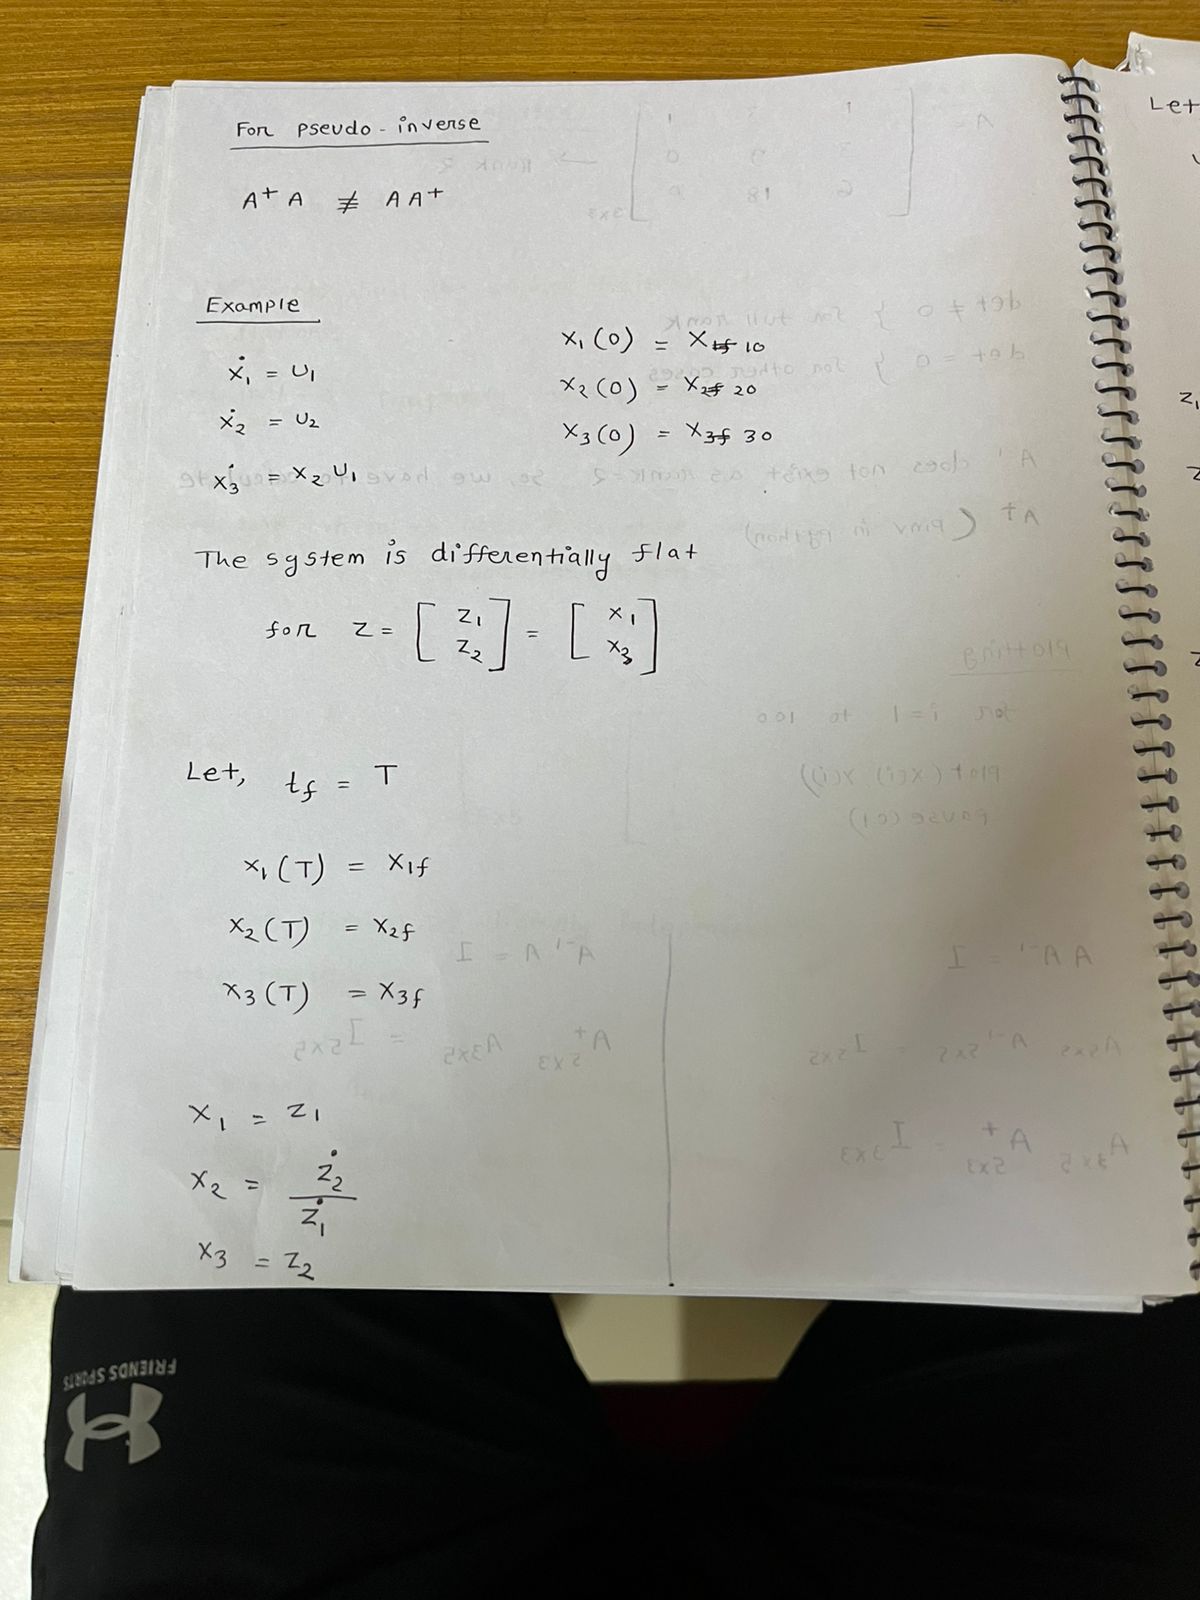 For pseudo-inverse
A⁺ A ≢ A A⁺
Example
ẋ₁ = U₁ x₁(0) = x₁₀
ẋ₂ = U₂ x₂(0) = x₂₀
ẋ₃ = x₂ U₁ x₃(0) = x₃₀
The system is differentially flat
for z = [ z₁ z₂ ] = [ x₁ x₃ ]
Let, t_f = T
x₁(T) = x₁f
x₂(T) = x₂f
x₃(T) = x₃f
x₁ = z₁
x₂ = ż₂ / ż₁
x₃ = z₂
Let
z₁
FRIENDS SPORTS